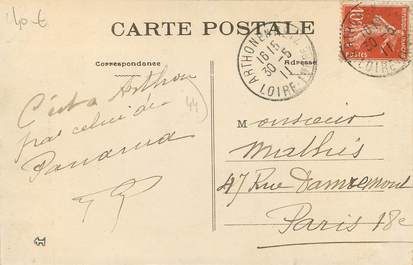 40 €
CARTE POSTALE
Correspondance
Adresse
ARTHON
16 15
30 -5
11
LOIRE-INF
10
POSTES
C'est à Arthon
pas celui de
Panama
44
Monsieur
Mathés
47 Rue Damremont
Paris 18e